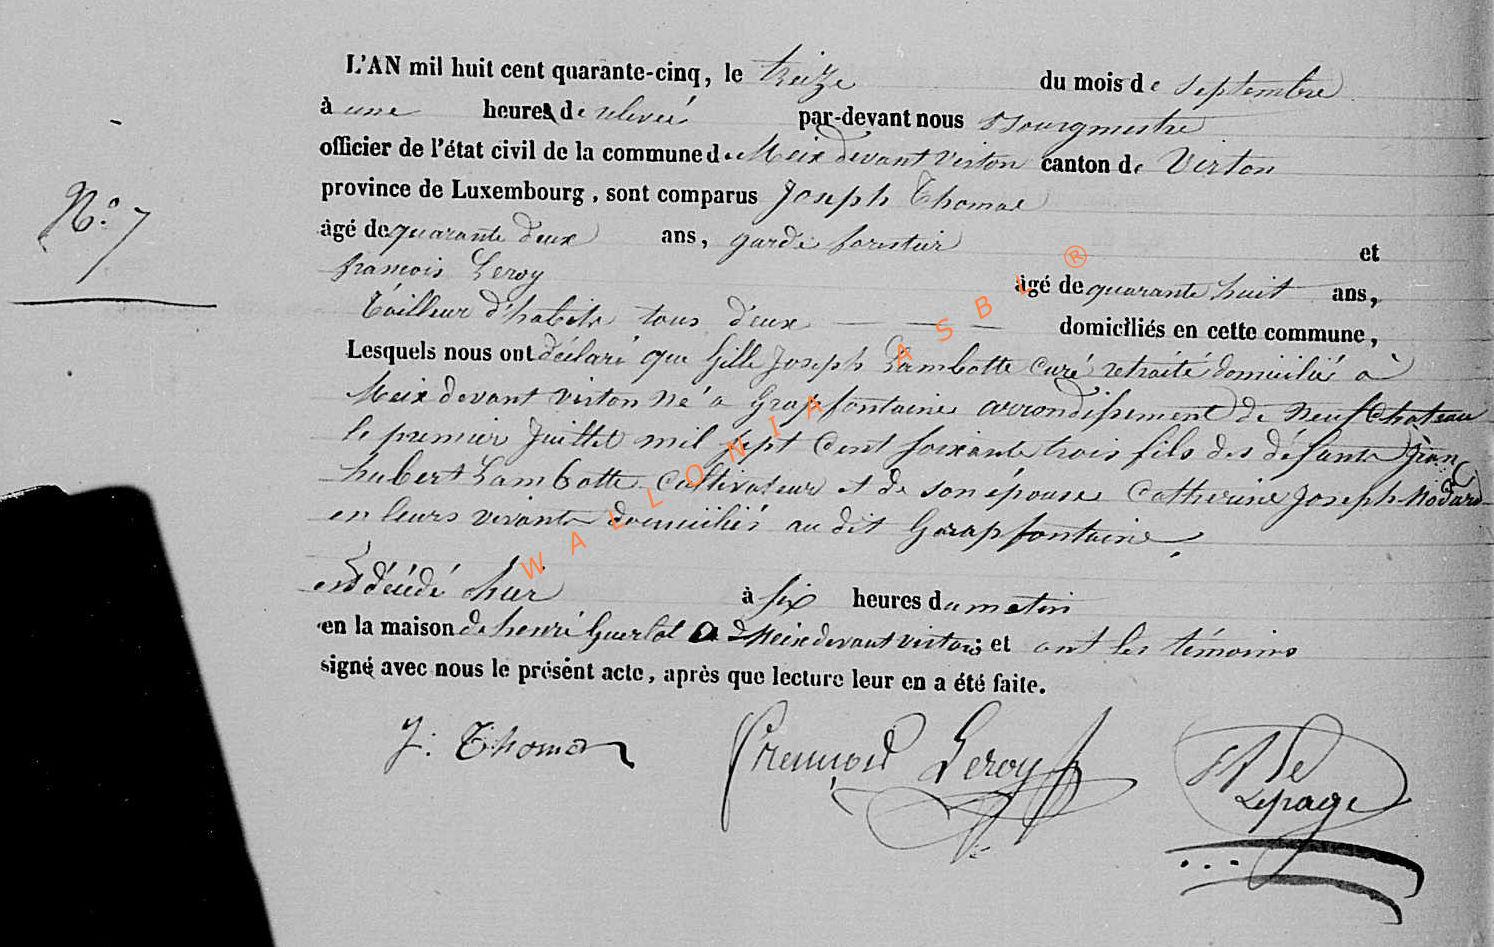 L'AN mil huit cent quarante-cinq, le treize du mois de septembre
à une heures de relevée par-devant nous Bourgmestre
officier de l'état civil de la commune de Meix devant virton canton de Virton
province de Luxembourg, sont comparus Joseph Thomas
âgé de quarante deux ans, garde forestier et
N.° 7
françois Leroy âgé de quarante huit ans,
Tailleur d'habits tous deux domiciliés en cette commune,
Lesquels nous ont déclaré que Gille Joseph Lambotte Curé retraité domicilié à
Meix devant virton né a Grapfontaine arrondissement de Neufchateau
le premier Juillet mil sept Cent soixante trois fils des défunts Jean
hubert Lambotte Cultivateur et de son épouse Catherine Joseph
en leurs vivants domiciliés au dit Grapfontaine,
est décédé hier à six heures du matin
en la maison de henri a Meix devant virton; et ont les témoins
signé avec nous le présent acte, après que lecture leur en a été faite.
J. Thomas François Leroy
Lepage
WALLONIA ASBL ®